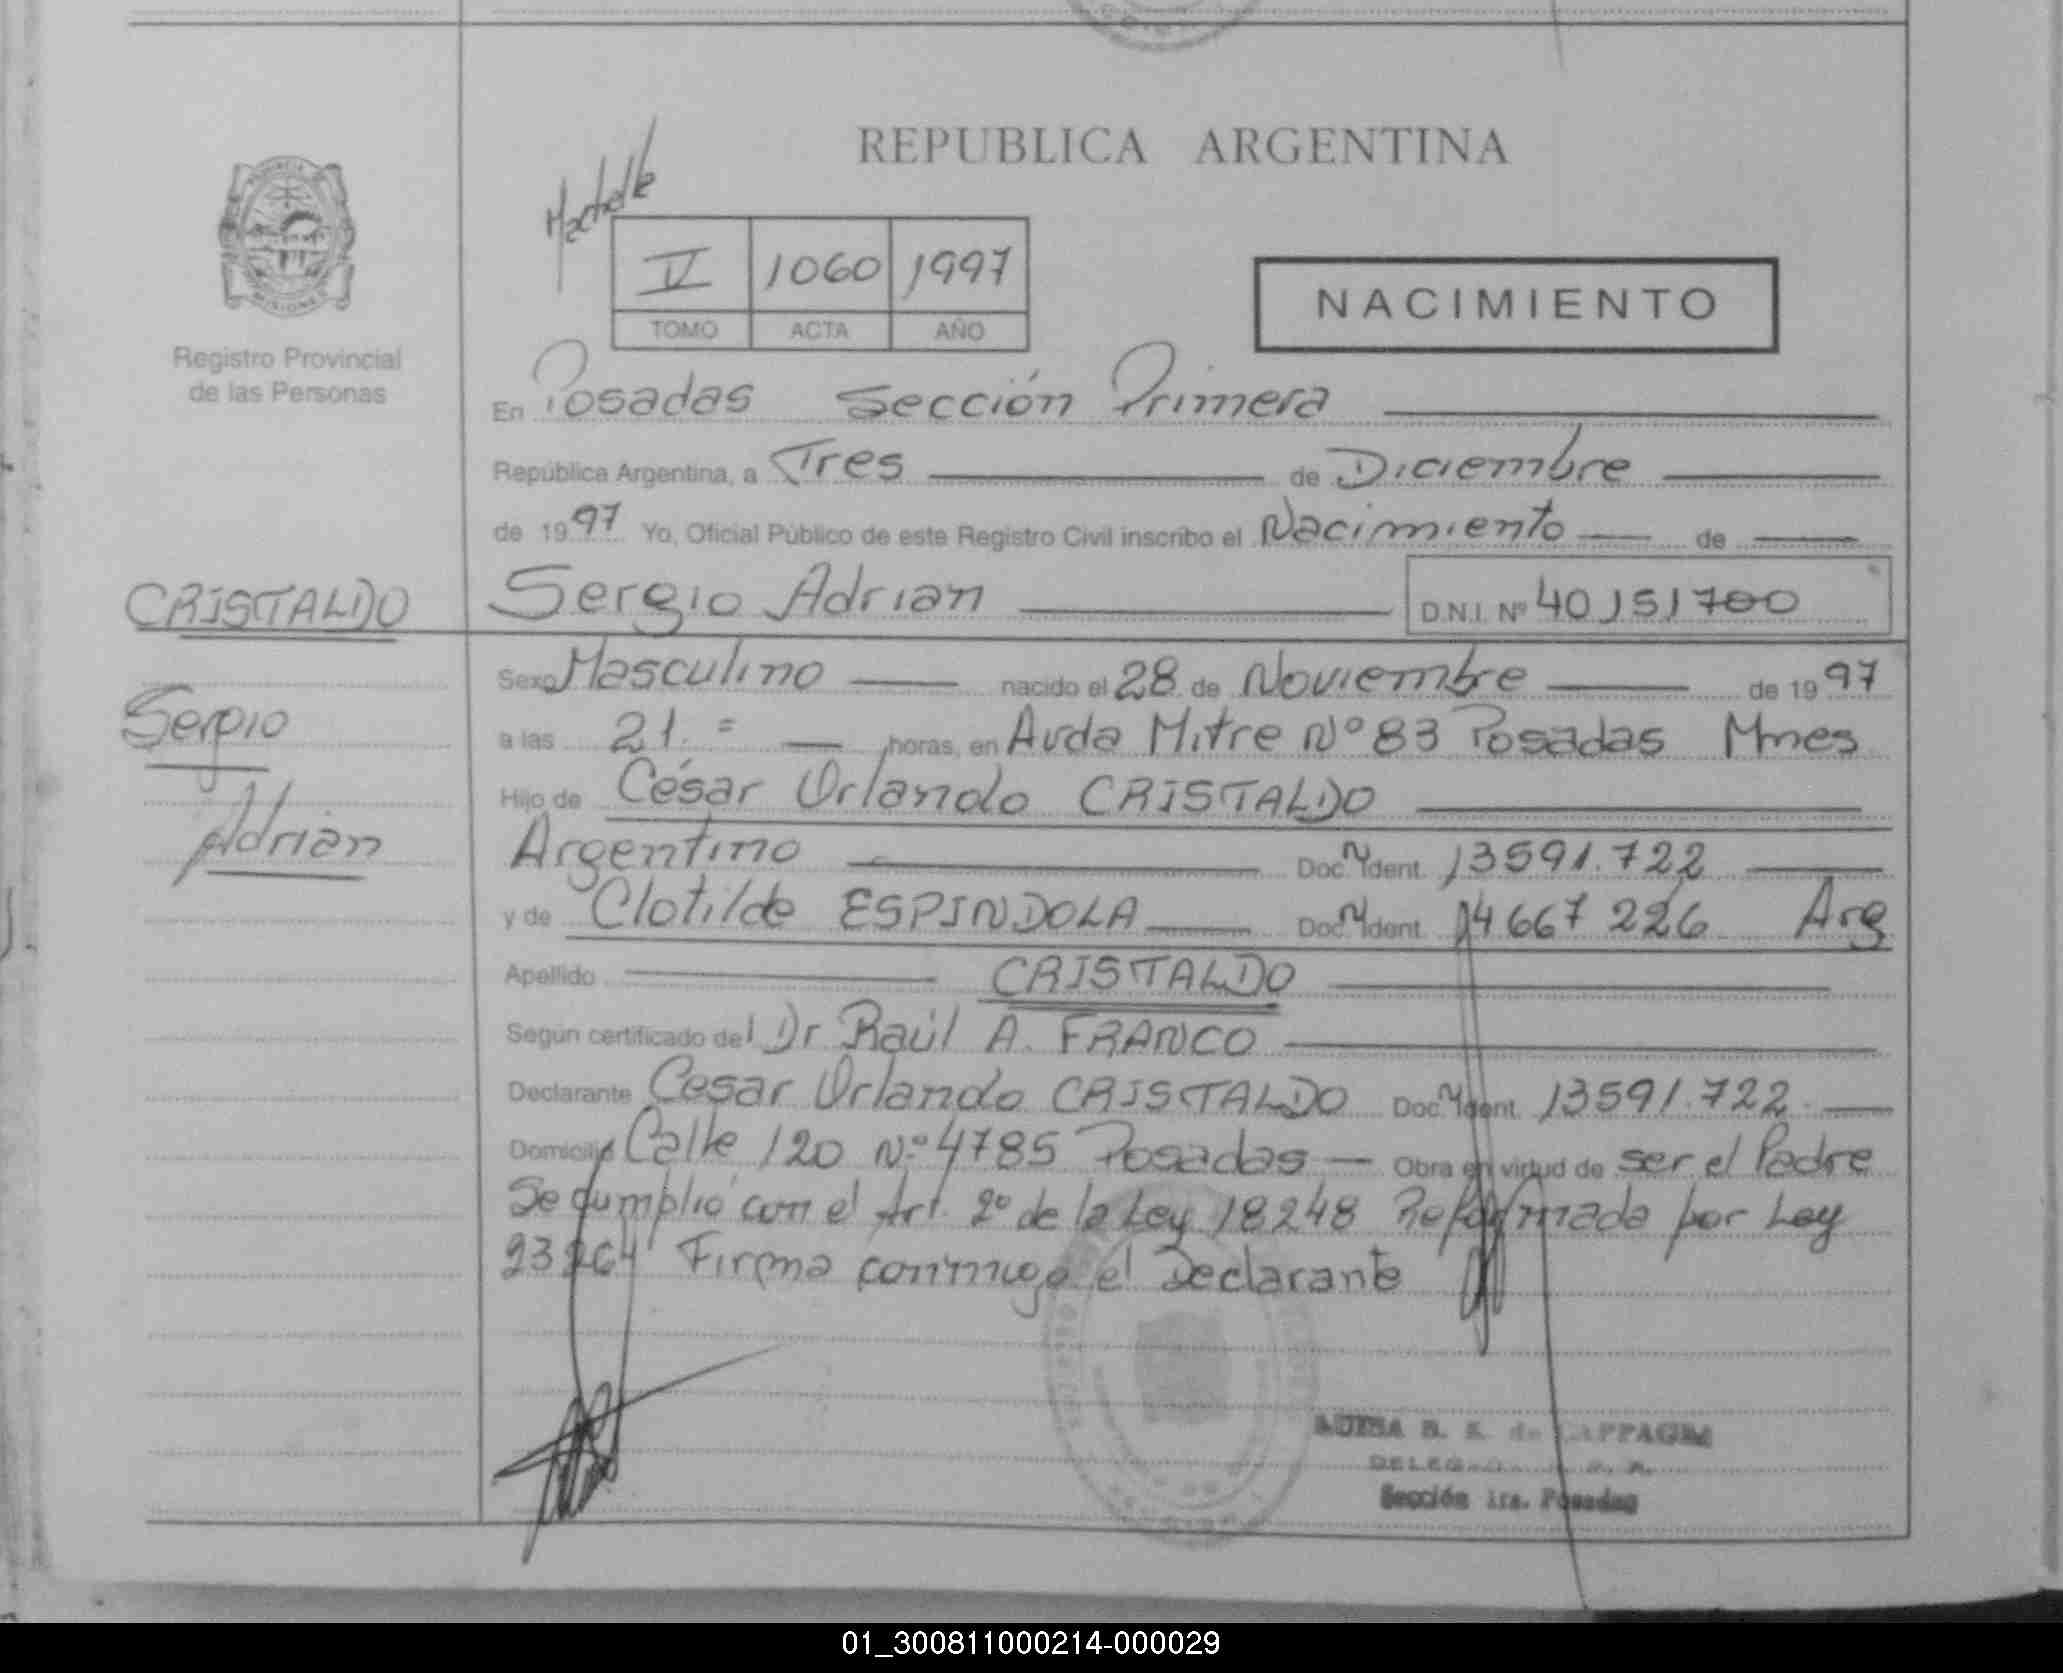 REPUBLICA ARGENTINA
V 1060 1997
TOMO ACTA AÑO
NACIMIENTO
MISIONES
Registro Provincial
de las Personas
En Posadas Sección Primera
República Argentina, a Tres de Diciembre
de 1997 Yo, Oficial Público de este Registro Civil inscribo el Nacimiento de
CRISTALDO
Sergio Adrian
D.N.I. Nº 40151700
Sergio
Adrian
Sexo Masculino nacido el 28 de Noviembre de 1997
a las 21.= horas, en Avda Mitre Nº 83 Posadas Mnes
Hijo de César Orlando CRISTALDO
Argentino Doc. Ident. 13591.722
y de Clotilde ESPINDOLA Doc. Ident. 14667226 Arg
Apellido CRISTALDO
Según certificado del Dr Raúl A. FRANCO
Declarante Cesar Orlando CRISTALDO Doc. Ident. 13591.722.
Domicilio Calle 120 Nº 4785 Posadas Obra en virtud de ser el Padre
Se cumplió con el Art. 2º de la Ley 18248 Reformada por Ley
23264 Firma conmigo el Declarante
Sección 1ra. Posadas
01_300811000214-000029